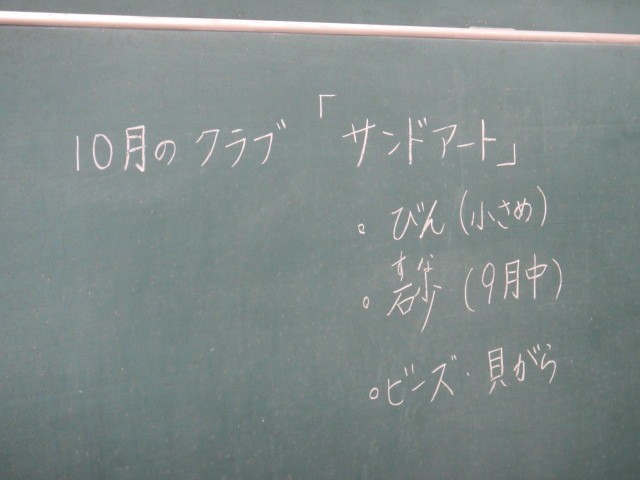 10月のクラブ「サンドアート」
。びん(小さめ)
すな
。砂(9月中)
。ビーズ・貝がら